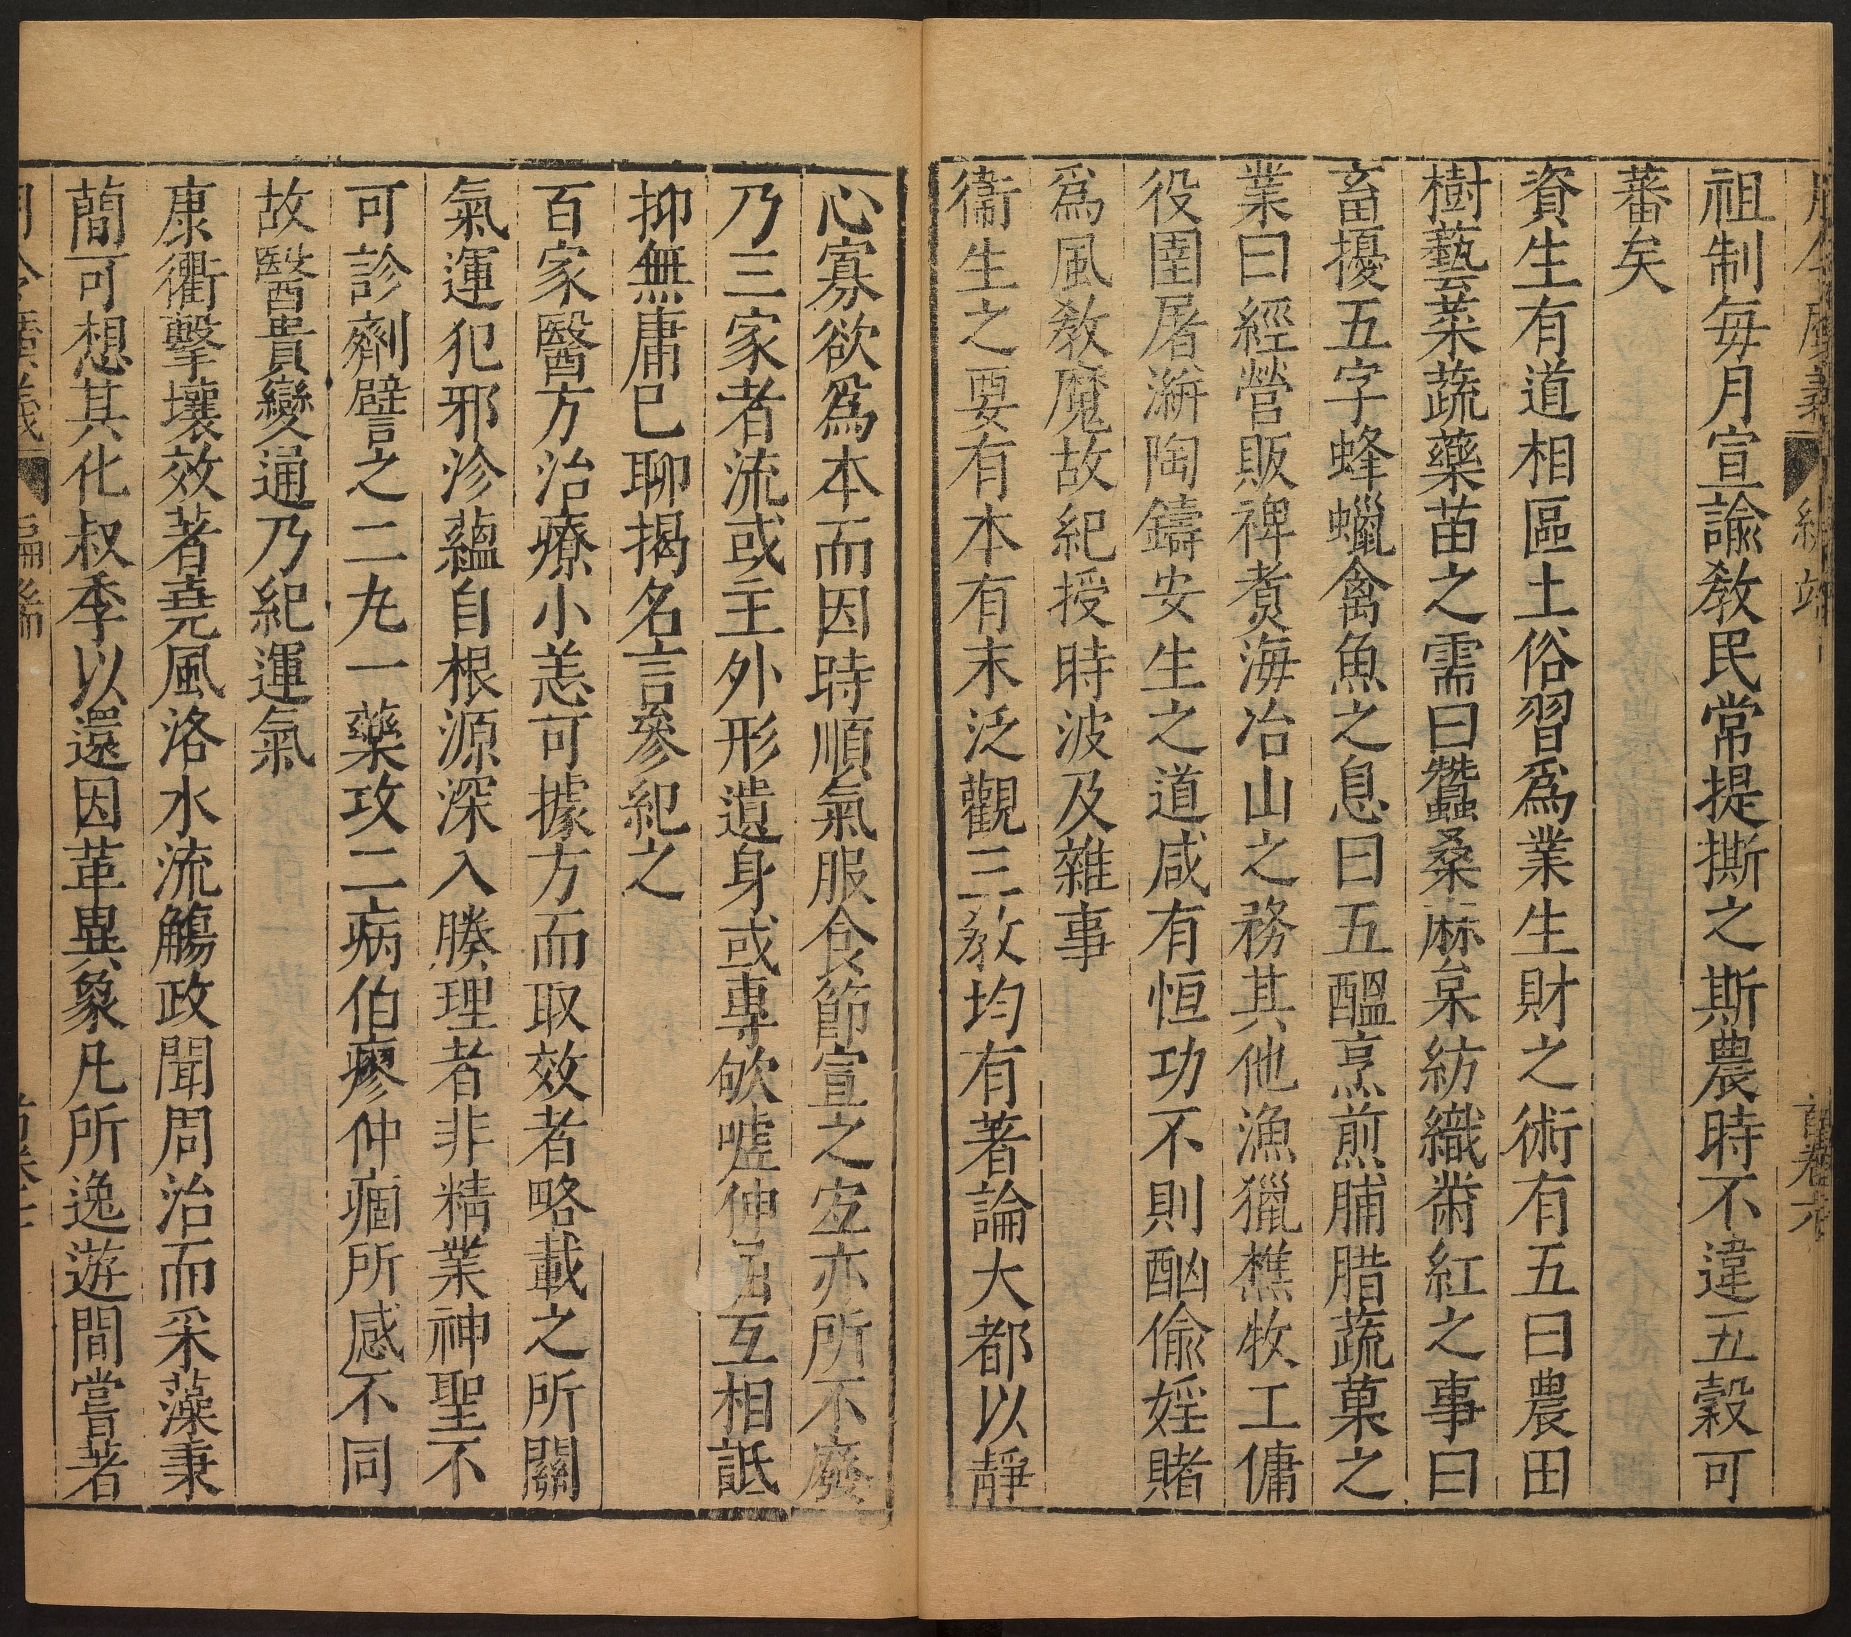 月令廣義 編端 首卷六
祖制每月宣諭教民常提撕之斯農時不違五穀可
蕃矣
資生有道相區土俗習爲業生財之術有五曰農田
樹藝菜蔬藥苗之需曰蠶桑麻枲紡織黹紅之事曰
畜擾五字蜂蠟禽魚之息曰五醞烹煎脯腊蔬菓之
業曰經營販裨煑海冶山之務其他漁獵樵牧工傭
役圉屠澣陶鑄安生之道咸有恒功不則酗偷婬賭
爲風教魔故紀授時波及雜事
衞生之要有本有末泛觀三教均有著論大都以靜
心寡欲爲本而因時順氣服食節宣之宜亦所不廢
乃三家者流或主外形遺身或專欨噓伸互相詆
抑無庸已聊揭名言參紀之
百家醫方治療小恙可據方而取效者略載之所關
氣運犯邪沴蘊自根源深入腠理者非精業神聖不
可診劑譬之二九一藥攻二病伯瘳仲痼所感不同
故醫貴變通乃紀運氣
康衢擊壤效著堯風洛水流觴政聞周治而采藻秉
蕑可想其化叔季以還因革異象凡所逸遊間嘗著
月令廣義 編端 首卷七